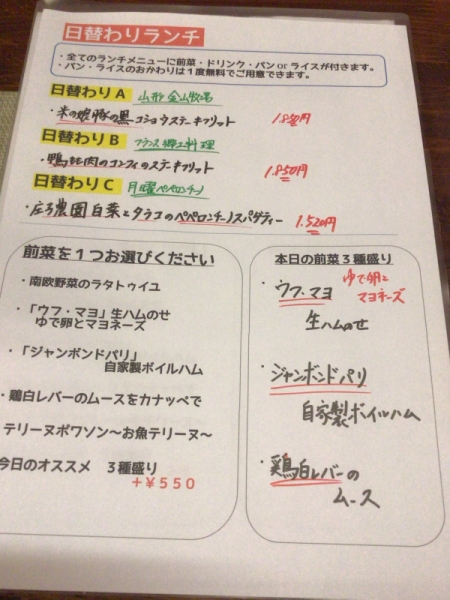 日替わりランチ
・全てのランチメニューに前菜・ドリンク・パン or ライスが付きます。
・パン・ライスのおかわりは１度無料でご用意できます。
日替わり A 山形 金山牧場
・米の娘豚の黒コショウステーキフリット
日替わり B フランス郷土料理
・鴨もも肉のコンフィのステーキフリット 1.850円
日替わり C 月曜ペペロンチーノ
・庄内農園白菜とタラコのペペロンチーノスパゲティー 1.520円
前菜を１つお選びください
・南欧野菜のラタトゥイユ
・「ウフ・マヨ」生ハムのせ
ゆで卵とマヨネーズ
・「ジャンボンドパリ」
自家製ボイルハム
・鶏白レバーのムースをカナッペで
テリーヌポワソン〜お魚テリーヌ〜
今日のオススメ ３種盛り
＋￥５５０
本日の前菜３種盛り
・ウフ・マヨ ゆで卵と
マヨネーズ
生ハムのせ
・ジャンボンドパリ
自家製ボイルハム
・鶏白レバーの
ムース